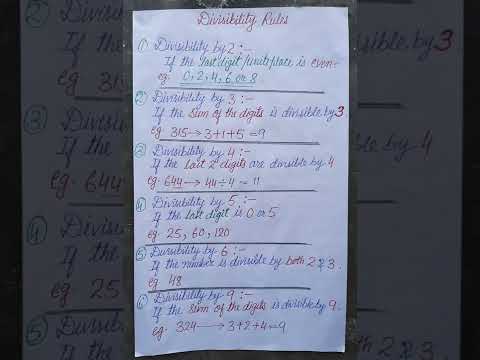 Divisibility Rules
① Divisibility by 2 :-
If the last digit/unit place is even-
eg. 0, 2, 4, 6 or 8
② Divisibility by 3 :-
If the sum of the digits is divisible by 3
eg 315 → 3+1+5 = 9
③ Divisibility by 4 :-
If the last 2 digits are divisible by 4
eg. 644 → 44 ÷ 4 = 11
④ Divisibility by 5 :-
If the last digit is 0 or 5
eg. 25, 60, 120
⑤ Divisibility by 6 :-
If the number is divisible by both 2 & 3.
eg 48
⑥ Divisibility by 9 :-
If the sum of the digits is divisible by 9.
eg. 324 → 3+2+4=9